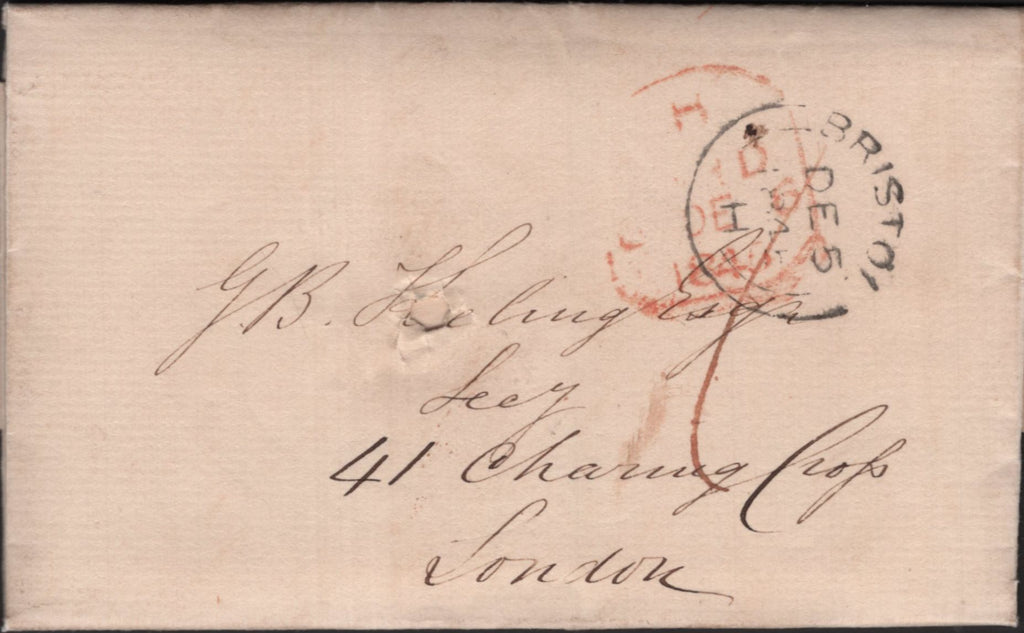 H
D
DE 6
184
BRISTOL
DE 5
H
G. B. Keeling Esqr
Secy
41 Charing Croſs
London